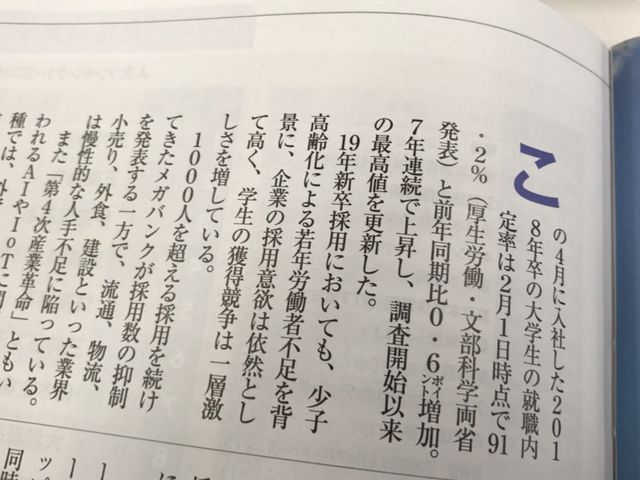 この4月に入社した201
8年卒の大学生の就職内
定率は2月1日時点で91
・2％（厚生労働・文部科学両省
発表）と前年同期比0・6ポイント増加。
7年連続で上昇し、調査開始以来
の最高値を更新した。
19年新卒採用においても、少子
高齢化による若年労働者不足を背
景に、企業の採用意欲は依然とし
て高く、学生の獲得競争は一層激
しさを増している。
1000人を超える採用を続け
てきたメガバンクが採用数の抑制
を発表する一方で、流通、物流、
小売り、外食、建設といった業界
は慢性的な人手不足に陥っている。
また「第4次産業革命」ともい
われるAIやIoTに関
種では、